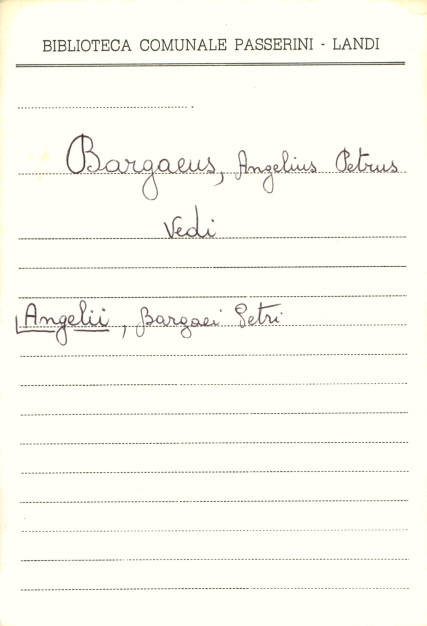 BIBLIOTECA COMUNALE PASSERINI - LANDI
Bargaeus, Angelius Petrus
Vedi
Angelii, Bargaei Petri